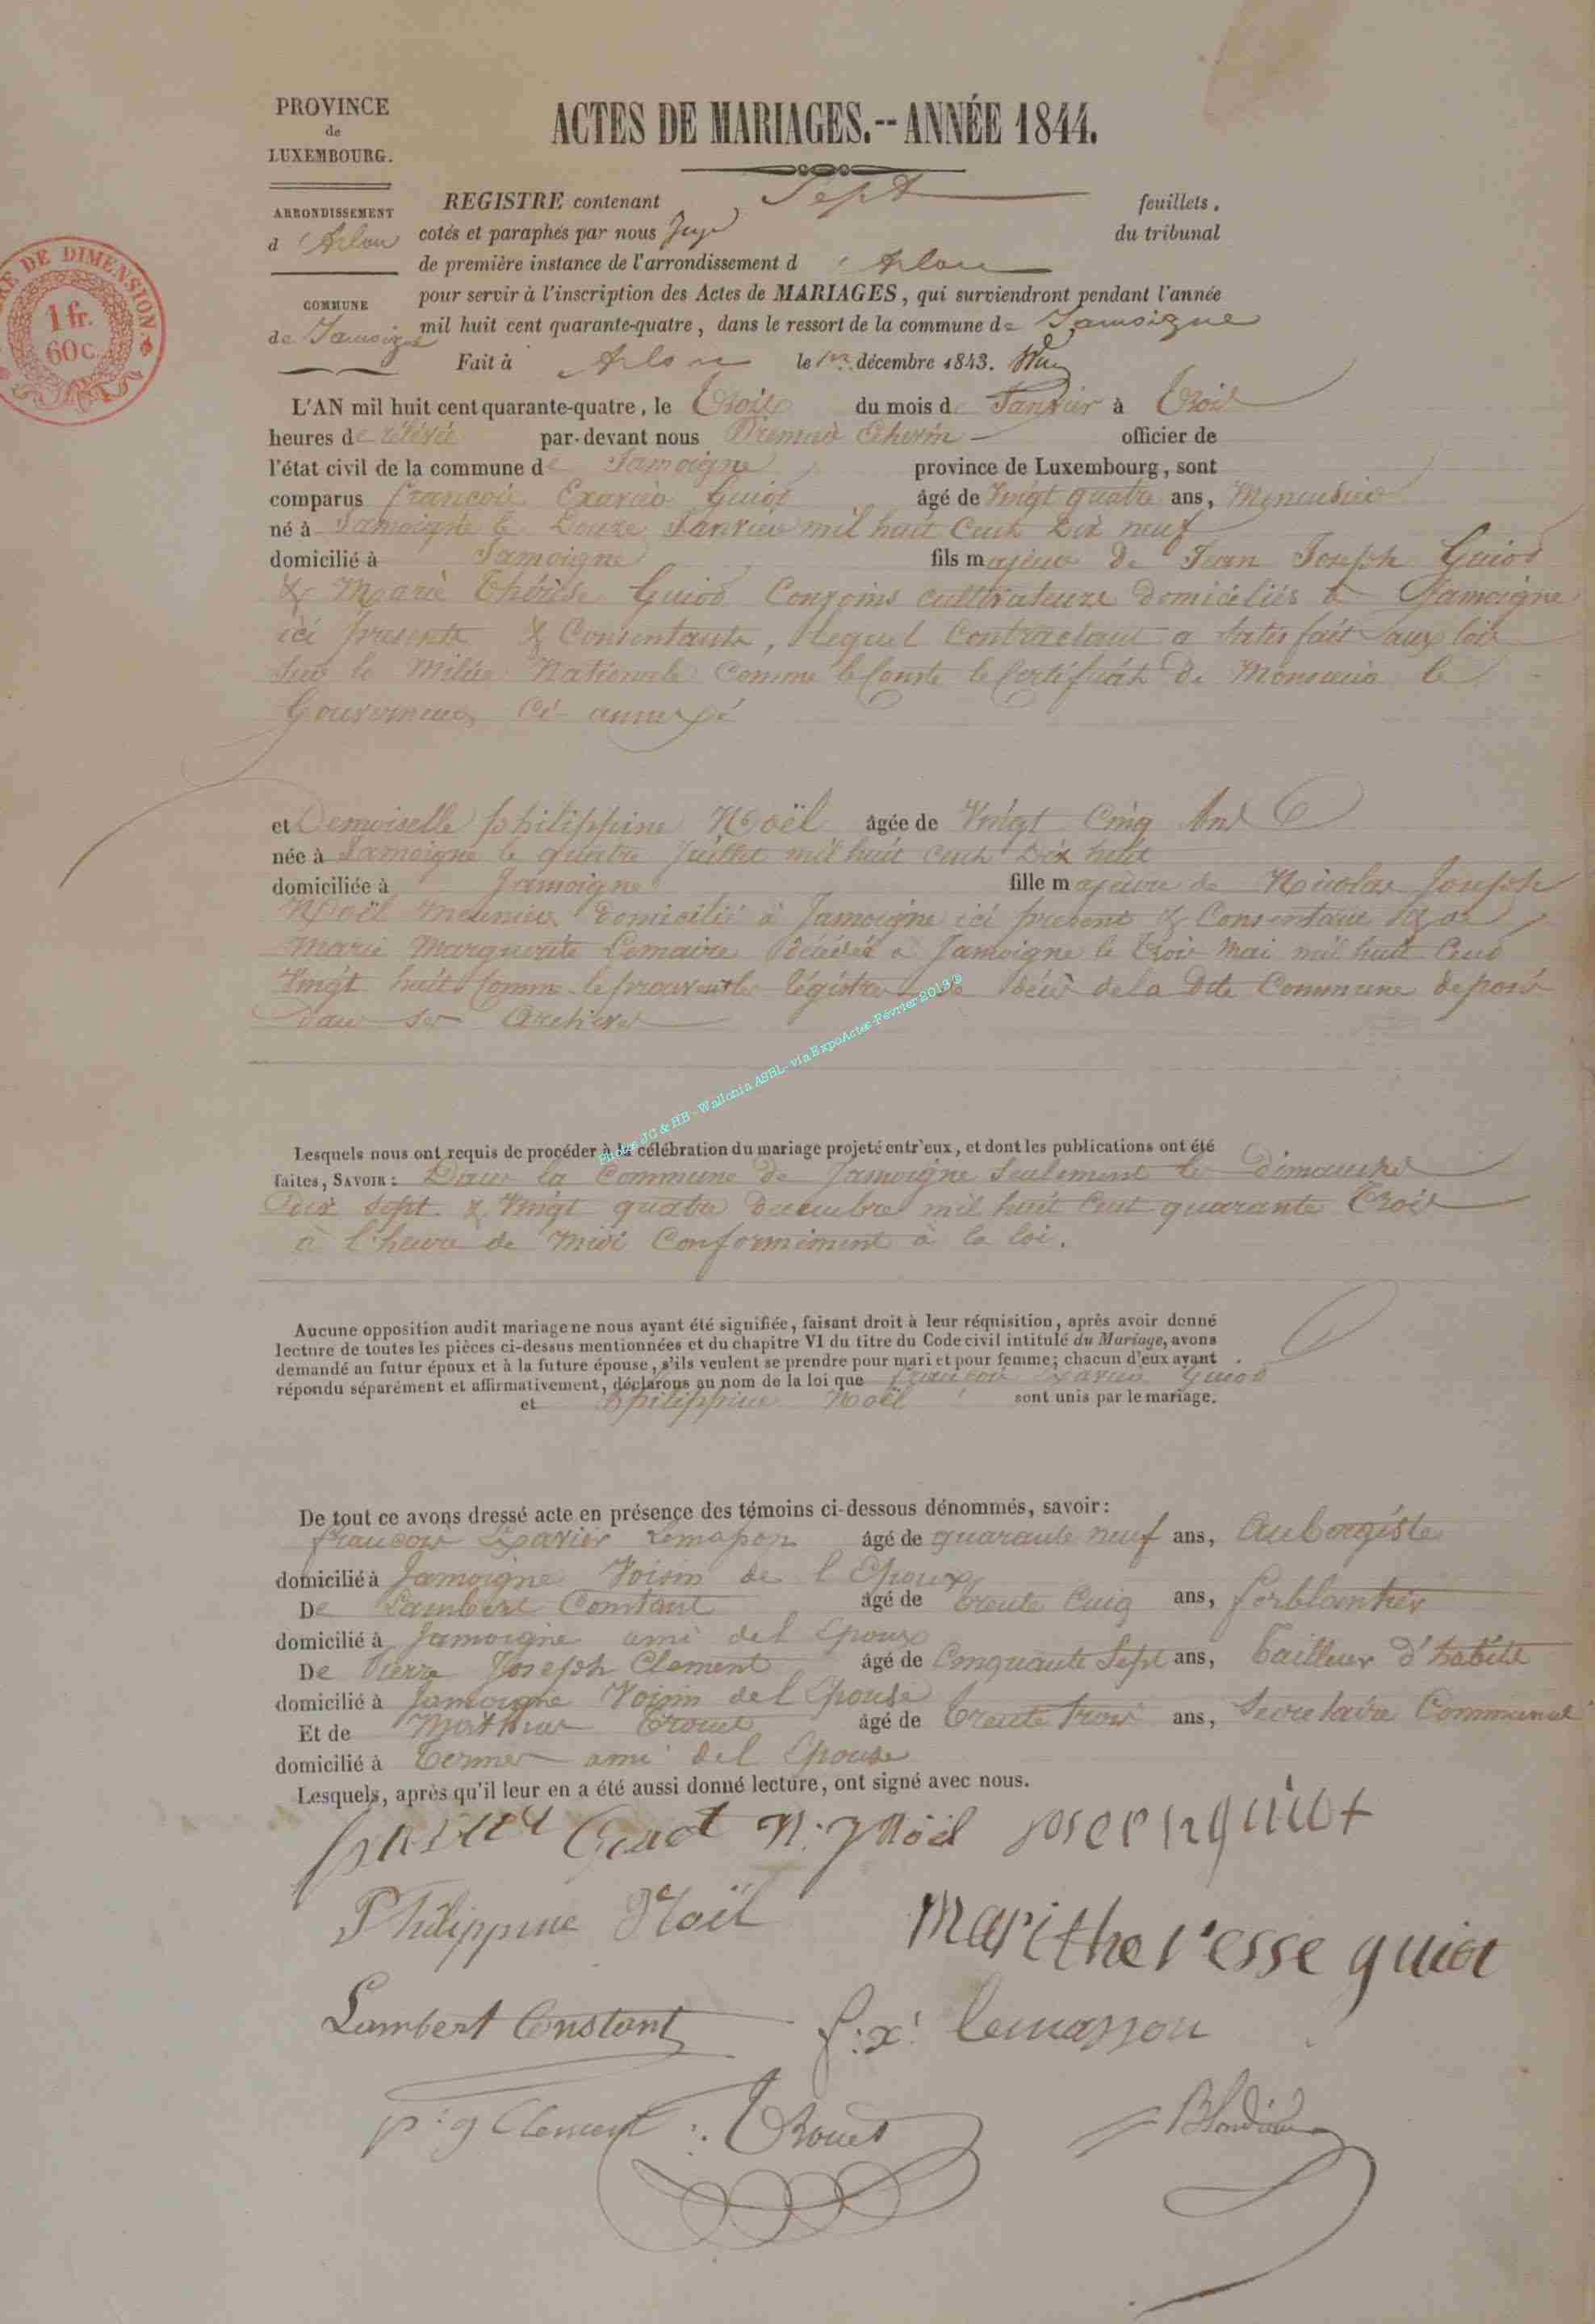 PROVINCE
de
LUXEMBOURG.
ACTES DE MARIAGES.-- ANNÉE 1844.
ARRONDISSEMENT
d'Arlon
COMMUNE
de Jamoigne
RE DE DIMENSION
1 fr.
60 c.
REGISTRE contenant Sept feuillets,
cotés et paraphés par nous Juge du tribunal
de première instance de l'arrondissement d'Arlon
pour servir à l'inscription des Actes de MARIAGES, qui surviendront pendant l'année
mil huit cent quarante-quatre, dans le ressort de la commune de Jamoigne
Fait à Arlon le 1er décembre 1843.
L'AN mil huit cent quarante-quatre, le Trois du mois de Janvier à Trois
heures de rélévée par-devant nous officier de
l'état civil de la commune de Jamoigne province de Luxembourg, sont
comparus françois Exavier Guiot âgé de Vingt quatre ans, Menuisier
né à Jamoigne le Douze Janvier mil huit Cent Dix neuf
domicilié à Jamoigne fils majeur de Jean Joseph Guiot
& Marie Thérèse Guiot Conjoins cultivateurs domiciliés à Jamoigne
ici present & Consentants, Lequel Contractant a satisfait aux lois
sur la Milice Nationale Comme le Conste le Certificat de Monsieur le
Gouverneur Ci-annexé
et Demoiselle philippine Noël âgée de Vingt Cinq Ans
née à Jamoigne le quatre Juillet mil huit Cent Dix huit
domiciliée à Jamoigne fille majeure de Nicolas Joseph
Noël Meunier domicilié à Jamoigne ici present & Consentant & de
Marie Marguerite Lemaire décédée à Jamoigne le trois Mai mil huit Cent
Vingt huit Comme le prouvent les régistres de décès de la Dite Commune deposé
dans ses Archives
Photos JG & HB - Wallonia ASBL - via ExpoActes-Février 2013 ©
Lesquels nous ont requis de procéder à la célébration du mariage projeté entr'eux, et dont les publications ont été
faites, SAVOIR: Dans la Commune de Jamoigne Seulement les dimanches
Dix Sept & Vingt quatre Decembre mil huit Cent quarante Trois
à l'heure de Midi Conformément à la loi.
Aucune opposition audit mariage ne nous ayant été signifiée, faisant droit à leur réquisition, après avoir donné
lecture de toutes les pièces ci-dessus mentionnées et du chapitre VI du titre du Code civil intitulé du Mariage, avons
demandé au futur époux et à la future épouse, s'ils veulent se prendre pour mari et pour femme; chacun d'eux ayant
répondu séparément et affirmativement, déclarons au nom de la loi que françois Exavier Guiot
et Philippine Noël sont unis par le mariage.
De tout ce avons dressé acte en présence des témoins ci-dessous dénommés, savoir:
françois Exavier Lemasson âgé de quarante neuf ans, Aubergiste
domicilié à Jamoigne Voisin de l'Epoux
De Lambert Constant âgé de trente Cinq ans, ferblantier
domicilié à Jamoigne ami del Epoux
De Pierre Joseph Clement âgé de Cinquante Sept ans, tailleur d'habits
domicilié à Jamoigne Voisin del Epouse
Et de Mathieu Trouet âgé de trente trois ans, Secretaire Communal
domicilié à Termes ami del Epouse
Lesquels, après qu'il leur en a été aussi donné lecture, ont signé avec nous.
Guiot N: J Nöel joseph guiot
Philippine Noël Marithe r'esse guiot
Lambert Constant f: x: lemasson
p: j Clement Trouet